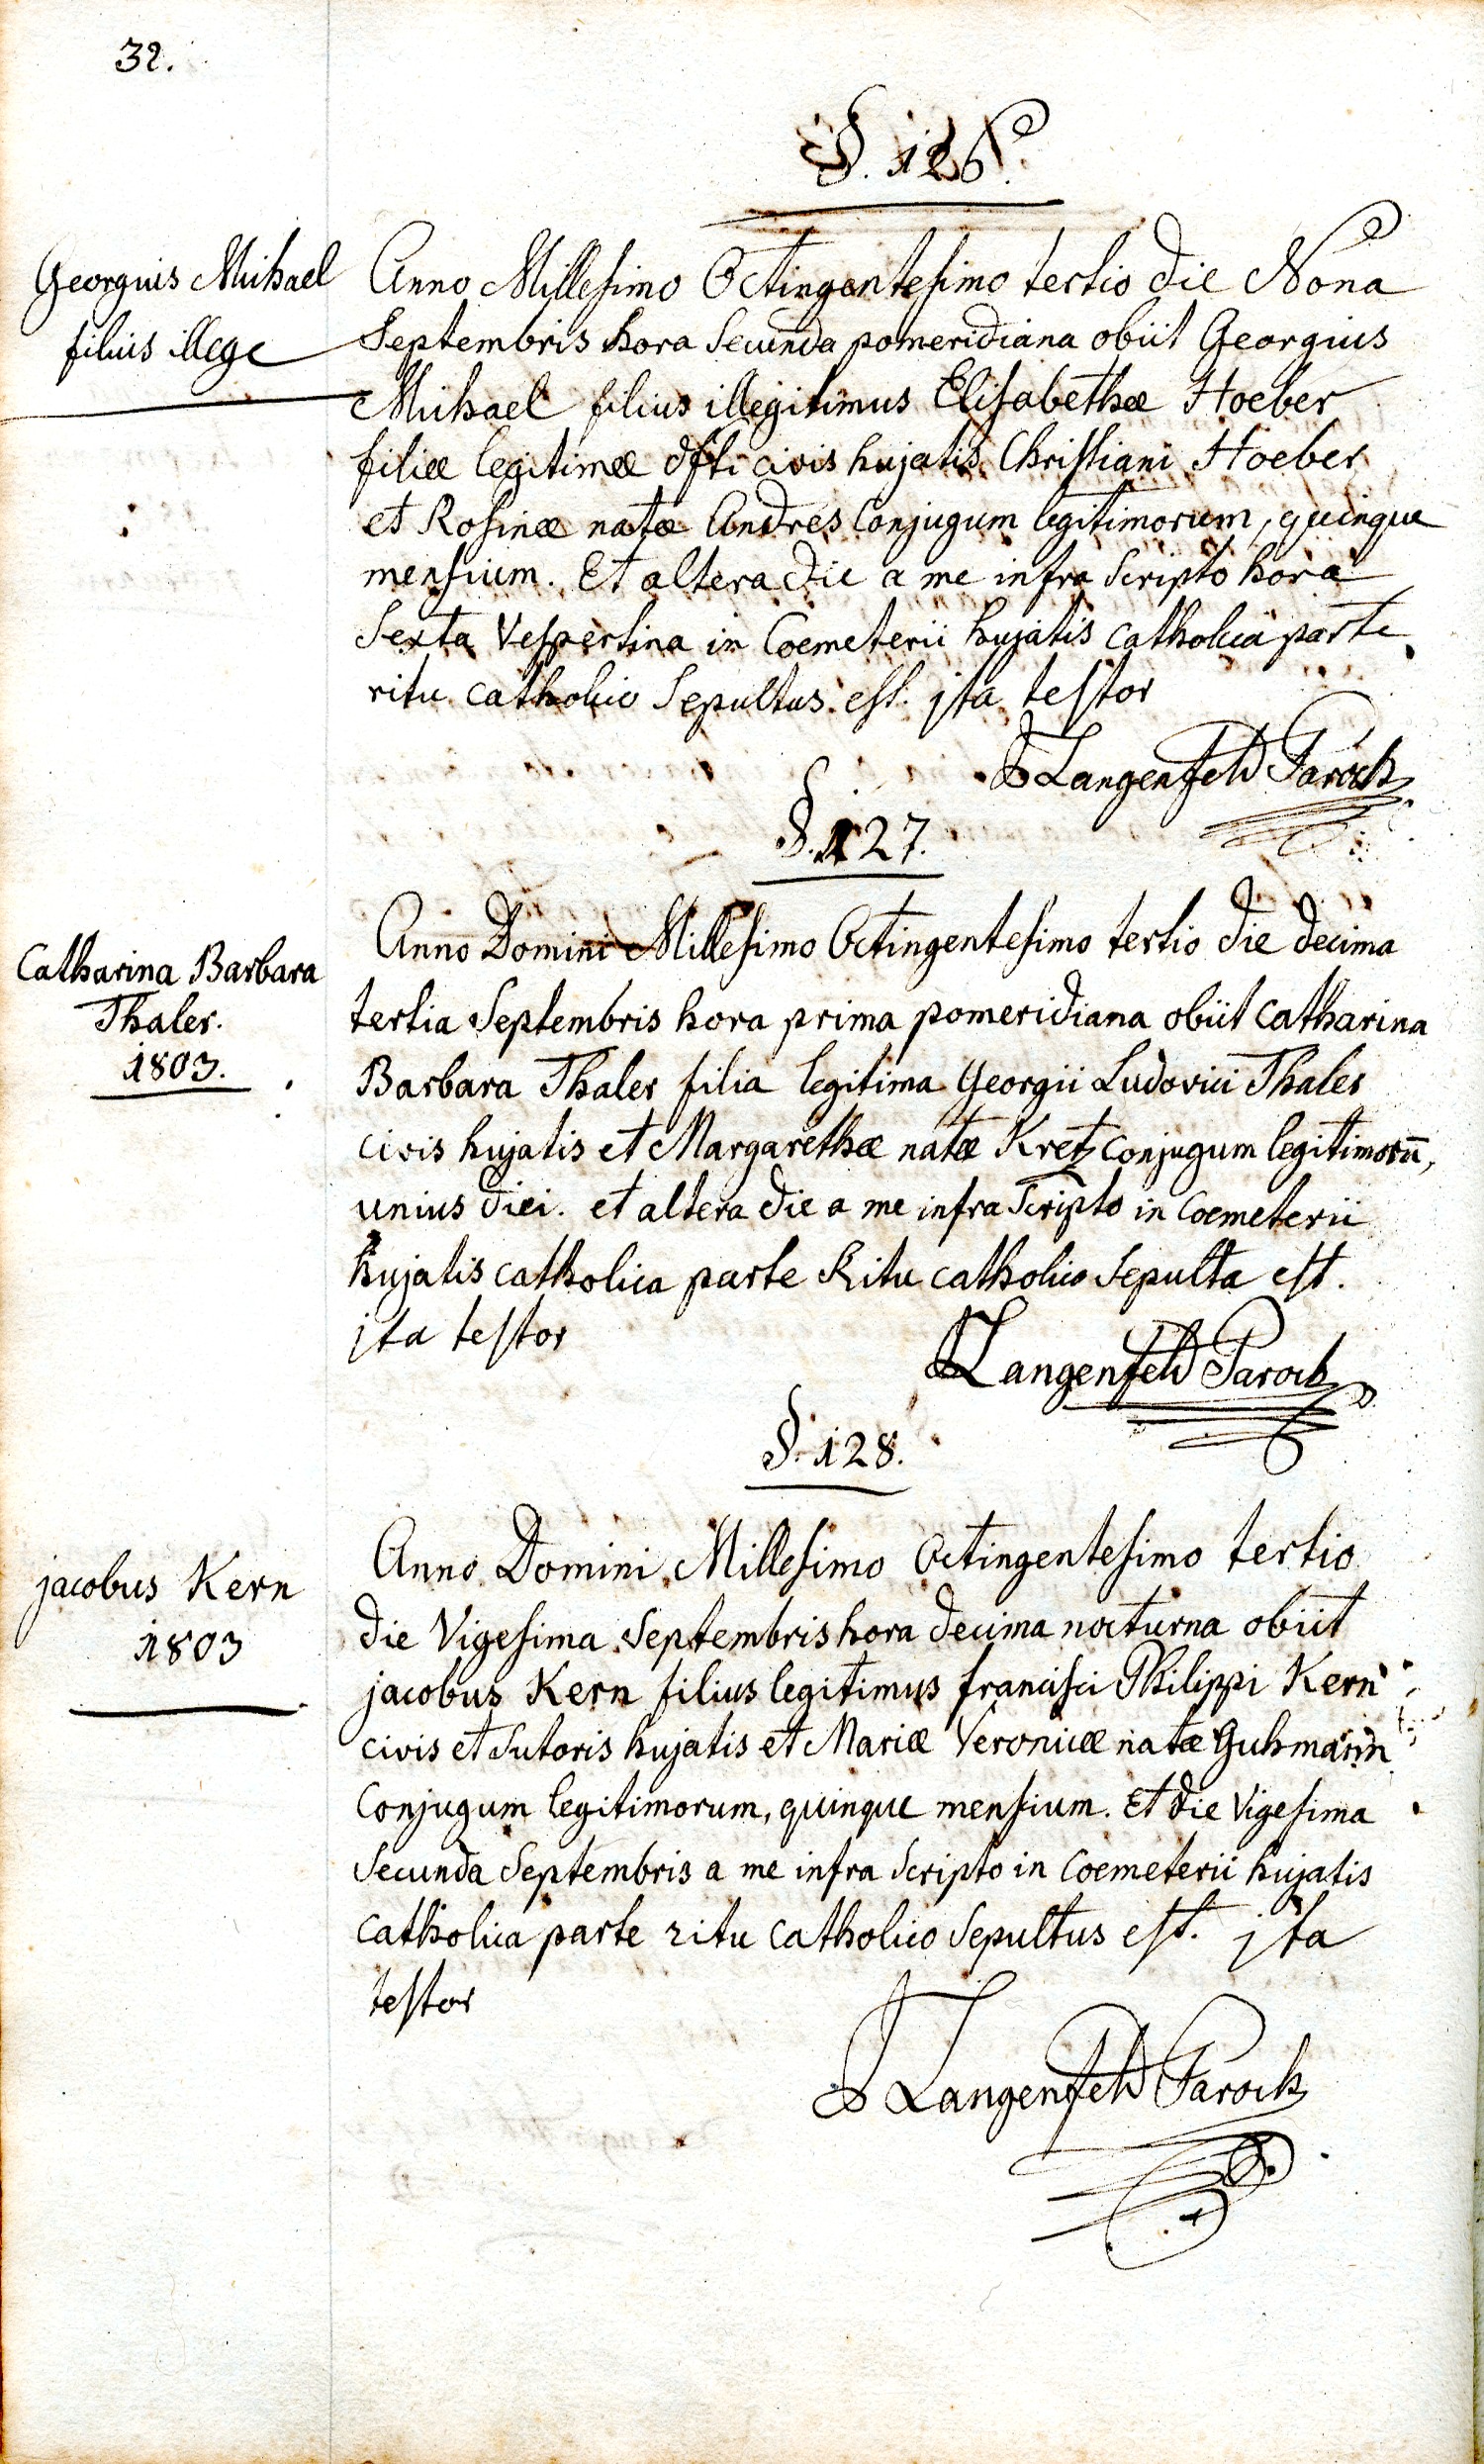 32.
§. 126.
Georgius Michael
filius illege
Anno Millesimo Octingentesimo tertio die Nona
Septembris hora Secunda pomeridiana obiit Georgius
Michael filius illegitimus Elisabethæ Hoeber
filiæ legitimæ dfti civis hujatis Christiani Hoeber
et Rosinæ natæ Andres Conjugum legitimorum, quinque
mensium. Et altera die a me infra Scripto hora
Sexta Vespertina in Coemeterii hujatis catholica parte
ritu catholico Sepultus est. jta testor
Langenfeld Paroch
§. 127.
Catharina Barbara
Thaler.
1803.
Anno Domini Millesimo Octingentesimo tertio die decima
tertia Septembris hora prima pomeridiana obiit Catharina
Barbara Thaler filia legitima Georgii Ludovici Thaler
civis hujatis et Margarethæ natæ Kretz Conjugum legitimorū,
unius diei. et altera die a me infra Scripto in Coemeterii
hujatis catholica parte Ritu catholico Sepulta est.
jta testor
Langenfeld Paroch
§. 128.
jacobus Kern
1803
Anno Domini Millesimo Octingentesimo tertio
die Vigesima Septembris hora decima nocturna obiit
jacobus Kern filius legitimus francisci Philippi Kern
civis et Sutoris hujatis et Mariæ Veronicæ natæ Guhmann
Conjugum legitimorum, quinque mensium. Et die Vigesima
Secunda Septembris a me infra Scripto in Coemeterii hujatis
catholica parte ritu catholico Sepultus est. jta
testor
Langenfeld Paroch